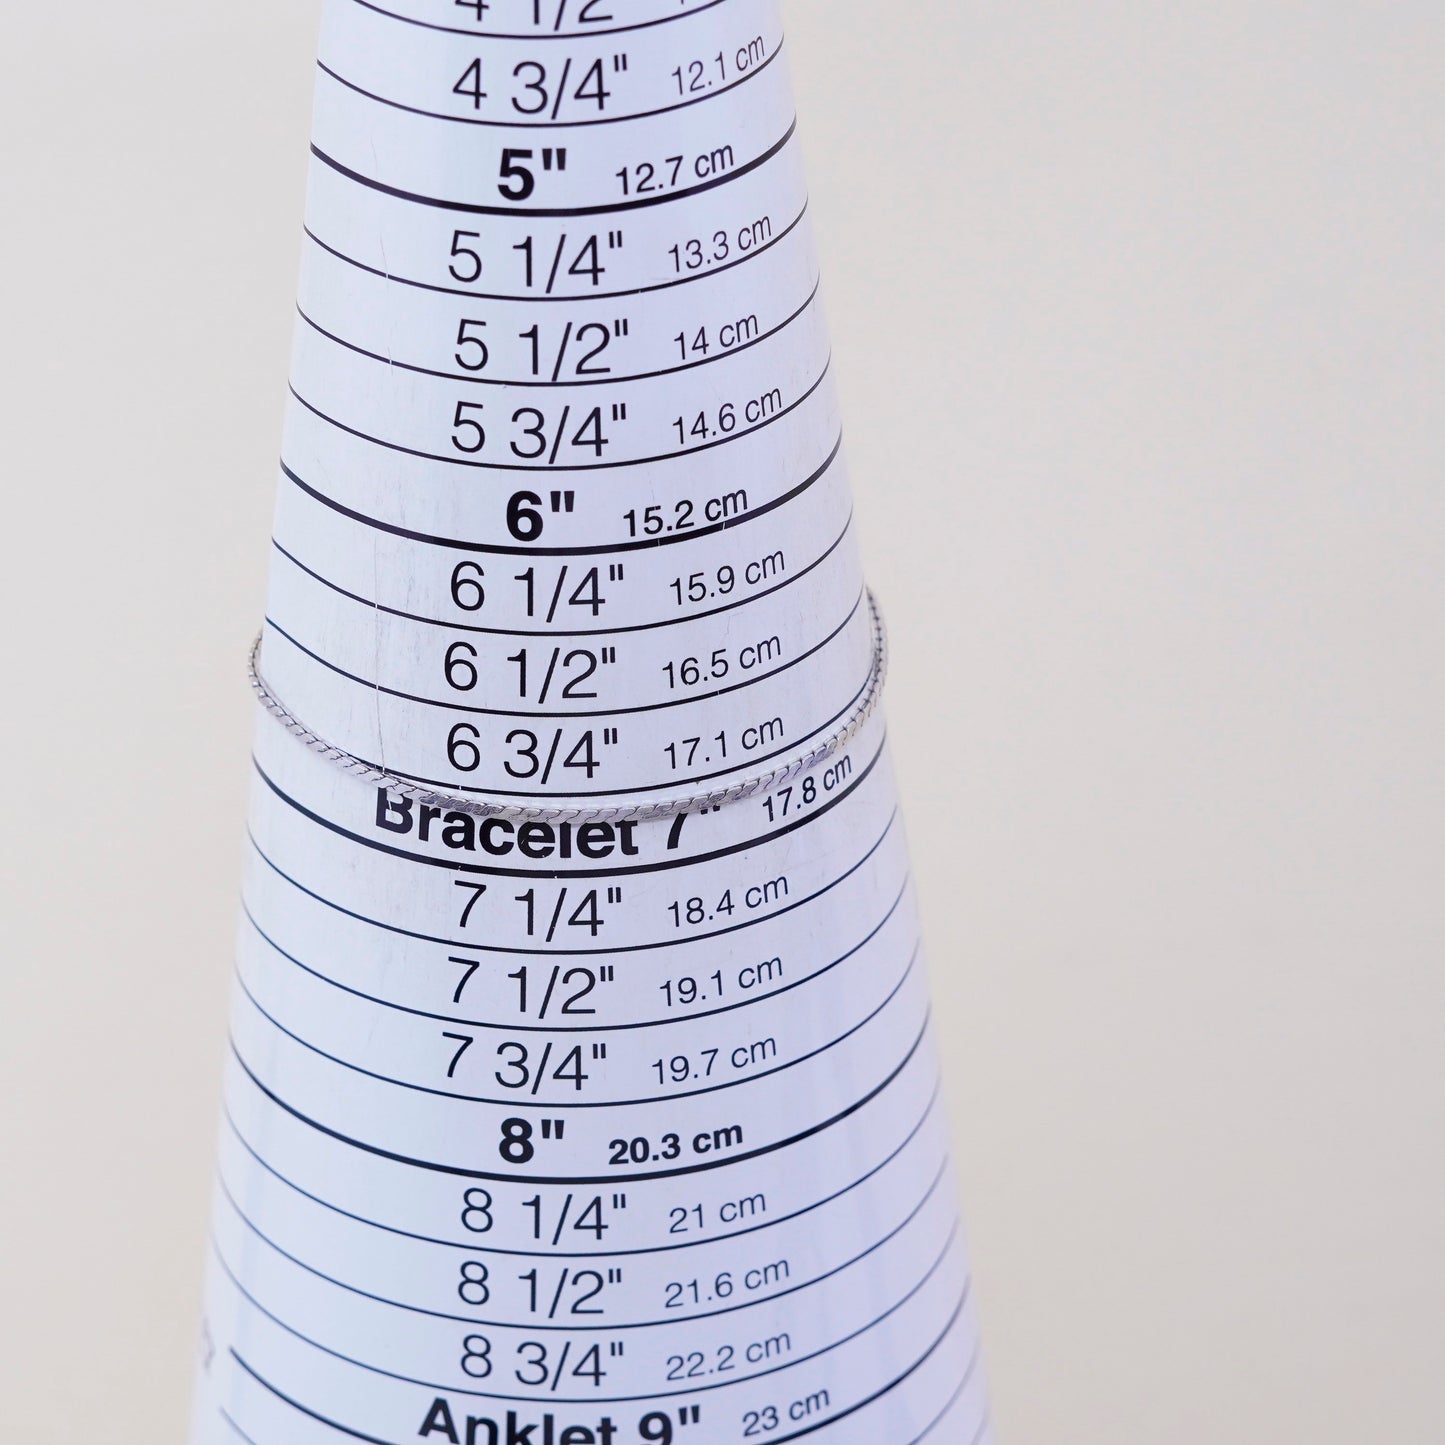 4 1/2"
4 3/4" 12.1 cm
5" 12.7 cm
5 1/4" 13.3 cm
5 1/2" 14 cm
5 3/4" 14.6 cm
6" 15.2 cm
6 1/4" 15.9 cm
6 1/2" 16.5 cm
6 3/4" 17.1 cm
Bracelet 7" 17.8 cm
7 1/4" 18.4 cm
7 1/2" 19.1 cm
7 3/4" 19.7 cm
8" 20.3 cm
8 1/4" 21 cm
8 1/2" 21.6 cm
8 3/4" 22.2 cm
Anklet 9" 23 cm